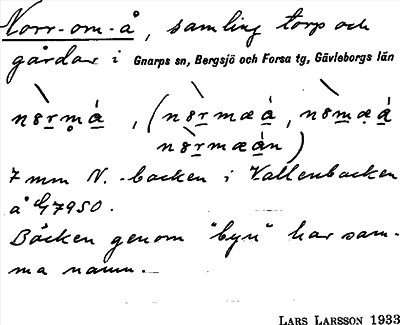 Norr-om-å, samling torp och
gårdar i Gnarps sn, Bergsjö och Forsa tg, Gävleborgs län
7 mm N. -backen i Vallenbacken
å G7950.
Bäcken genom "byn" har sam-
ma namn.
LARS LARSSON 1933